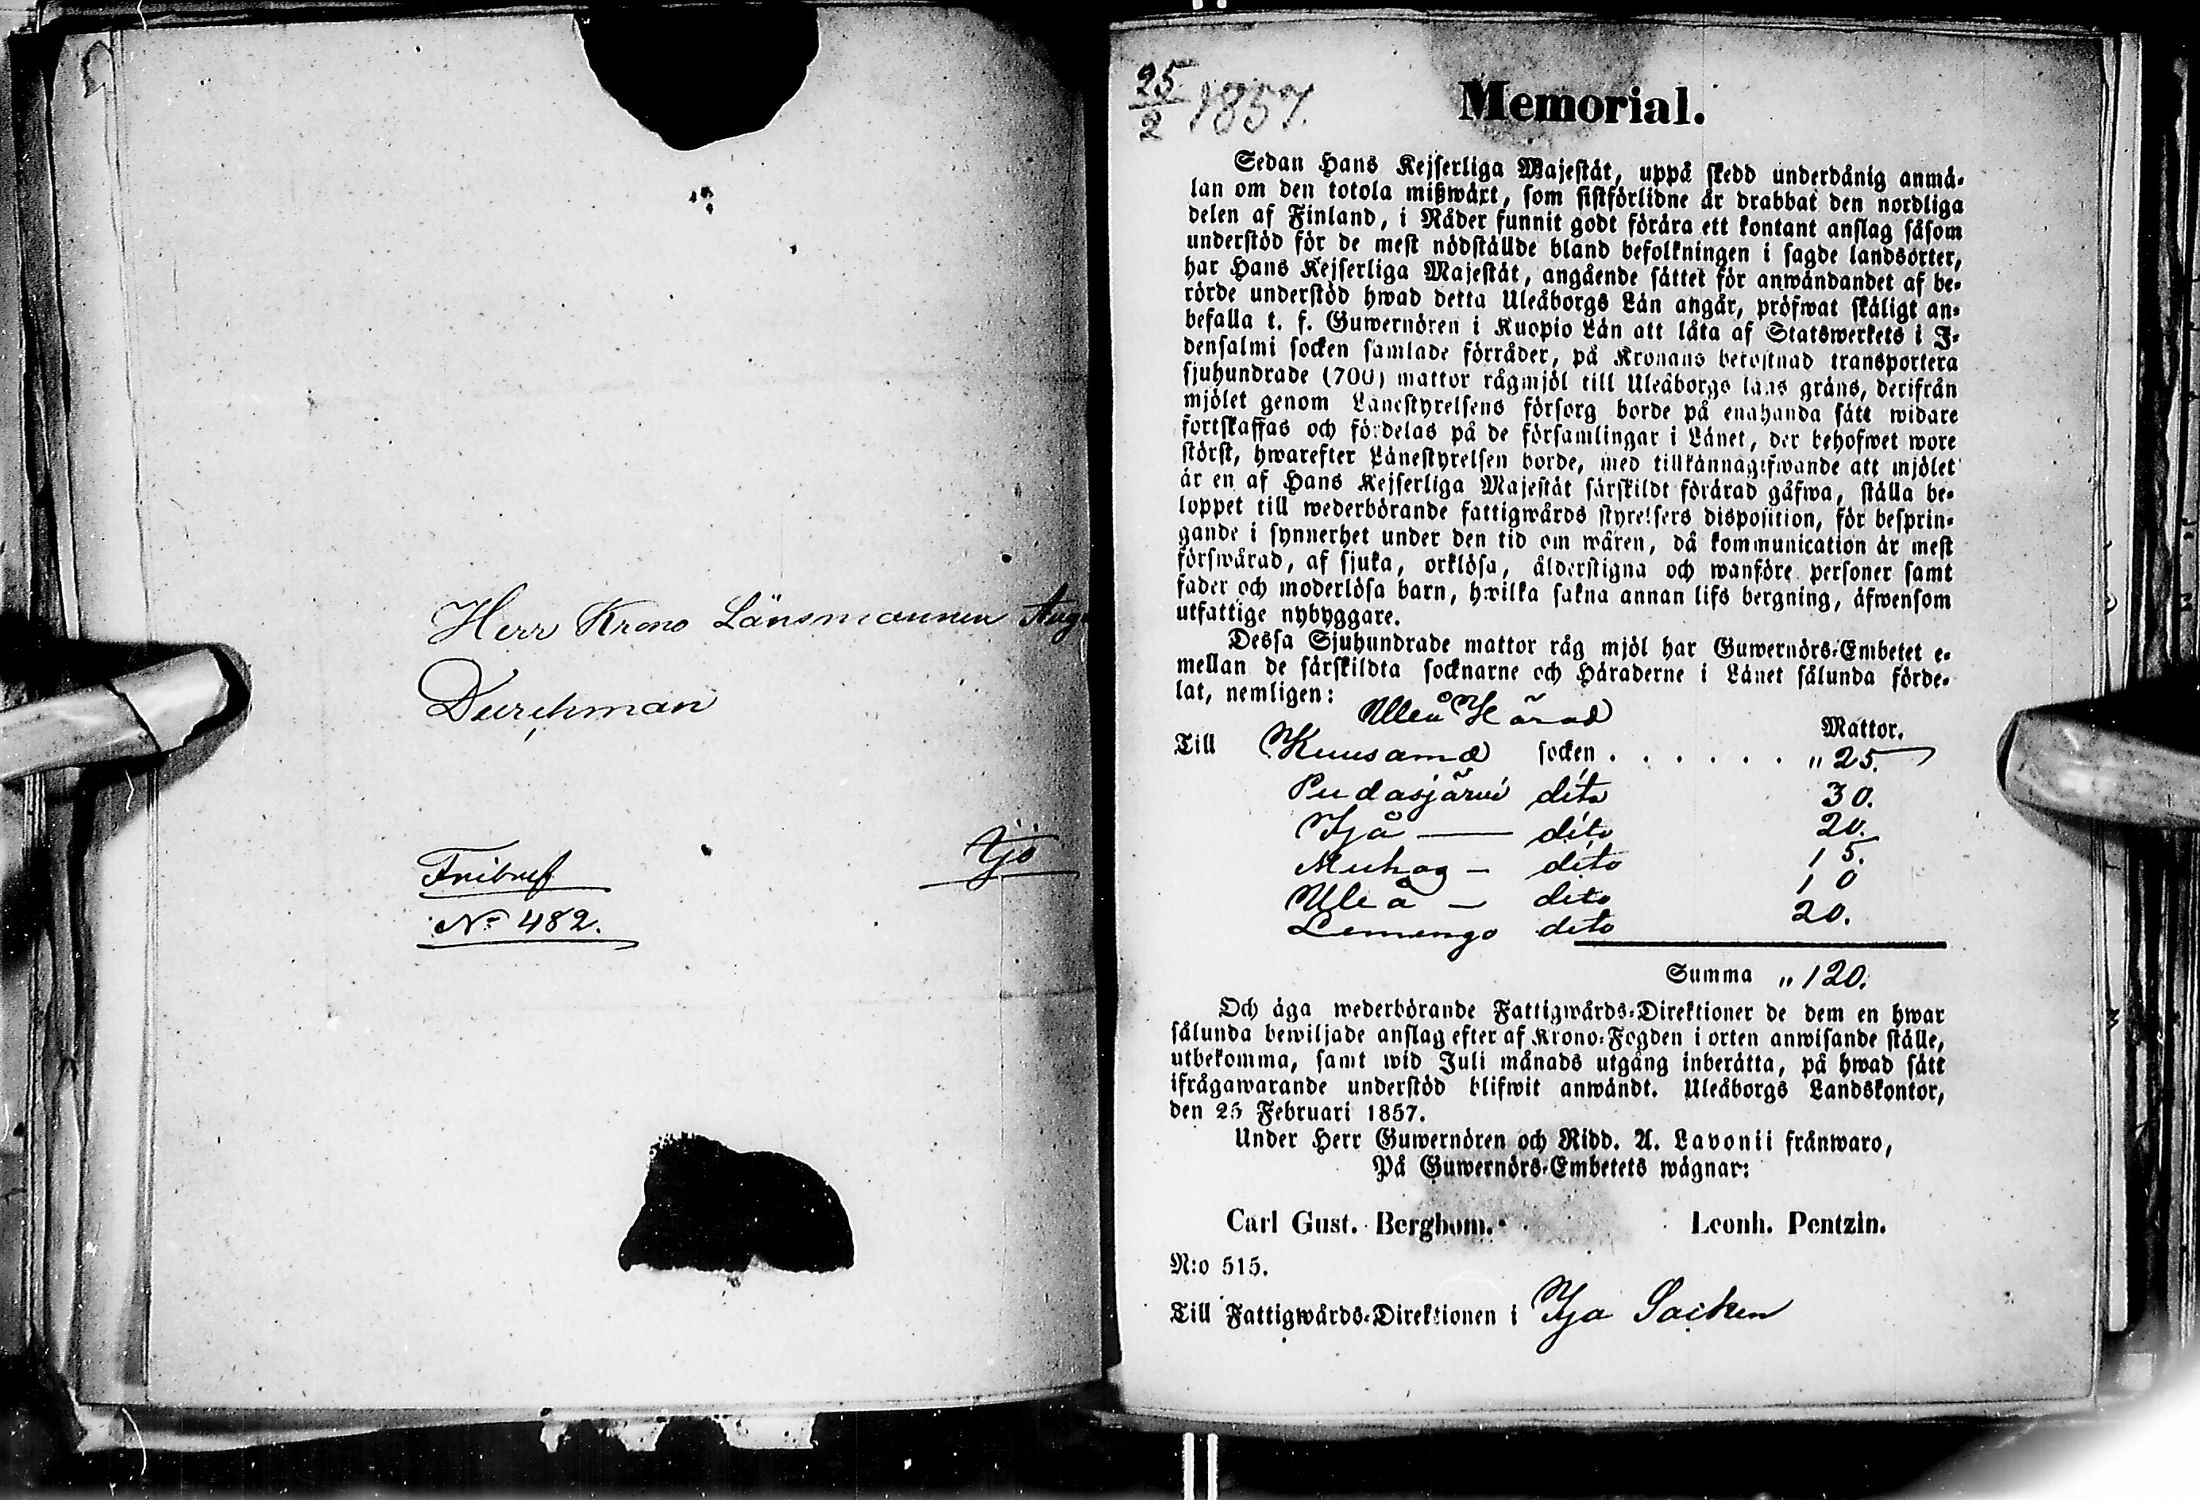 Herr Krono Länsmannen Aug
Durchman
Fribref
Ijo
No 482.
25/2 1857.
Memorial.
Sedan Hans Kejserliga Majestät, uppå skedd underdånig anmä-
lan om den totola mißwäxt, som sistförlidne år drabbat den nordliga
delen af Finland, i Nåder funnit godt förära ett kontant anslag såsom
understöd för de mest nödställde bland befolkningen i sagde landsorter,
har Hans Kejserliga Majestät, angående sättet för anwändandet af be-
rörde understöd hwad detta Uleåborgs Län angår, pröfwat skäligt an-
befalla t. f. Guwernören i Kuopio Län att låta af Statswerkets i I-
densalmi socken samlade förråder, på Kronans bekostnad transportera
sjuhundrade (700) mattor rågmjöl till Uleåborgs läns gräns, derifrån
mjölet genom Länestyrelsens försorg borde på enahanda sätt widare
fortskaffas och fördelas på de församlingar i Länet, der behofwet wore
störst, hwarefter Länestyrelsen borde, med tillkännagifwande att mjölet
är en af Hans Kejserliga Majestät särskildt förärad gåfwa, ställa be-
loppet till wederbörande fattigwårds styrelsers disposition, för bespringande
gande i synnerhet under den tid om wåren, då kommunication är mest
förswårad, af sjuka, orklösa, ålderstigna och wanföre personer samt
fader och moderlösa barn, hwilka sakna annan lifs bergning, äfwensom
utfattige nybyggare.
Dessa Sjuhundrade mattor råg mjöl har Guwernörs-Embetet e-
mellan de särskildta socknarne och Häraderne i Länet sålunda förde-
lat, nemligen:
Uleå Härad
Mattor.
Till Kuusamo socken . . . . . . „ 25.
Pudasjärvi dito 30.
Ijå — dito 20.
Muhos — dito 15.
Uleå — dito 10
Lemingo dito 20.
Summa „ 120.
Och äga wederbörande Fattigwårds-Direktioner de dem en hwar
sålunda bewiljade anslag efter af Krono-Fogden i orten anwisande ställe,
utbekomma, samt wid Juli månads utgång inberätta, på hwad sätt
ifrågawarande understöd blifwit anwändt. Uleåborgs Landskontor,
den 25 Februari 1857.
Under Herr Guwernören och Ridd. A. Lavonii frånwaro,
På Guwernörs-Embetets wägnar:
Carl Gust. Bergbom. Leonh. Pentzin.
N:o 515.
Till Fattigwårds-Direktionen i Ijo Socken